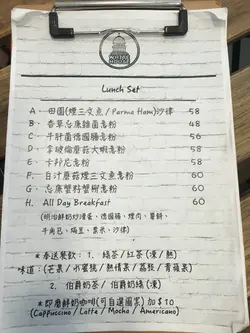 Lunch Set
A. 田園(煙三文魚 / Parma Ham)沙律 58
B. 香草忌廉雜菌意粉 48
C. 牛肝菌德國腸意粉 56
D. 拿破倫蘑菇大蝦意粉 58
E. 卡邦尼意粉 58
F. 白汁蘑菇煙三文魚意粉 60
G. 忌廉蟹籽蟹柳意粉 60
H. All Day Breakfast 60
(明治鮮奶炒滑蛋、德國腸、煙肉、薯餅、
牛角包、磨菇、粟米、沙律)
*奉送餐飲: 1. 綠茶 / 紅茶 (凍 / 熱)
味道: (芒果 / 水蜜桃 / 熱情果 / 荔枝 / 青蘋果)
2. 伯爵奶茶 / 伯爵奶綠 (凍)
*即磨鮮奶咖啡(可自選圖案) 加 $10
(Cappuccino / Latte / Mocha / Americano)